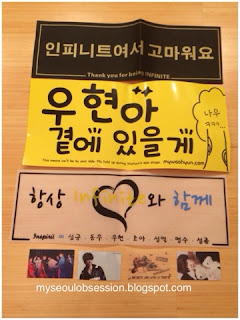 인피니트여서 고마워요
Thank you for being INFINITE
우현아
나무
곁에 있을게
mywoohyun.com
항상 infinite와 함께
Inspirit = 성규 · 동우 · 우현 · 호야 · 성열 · 명수 · 성종
myseoulobsession.blogspot.com